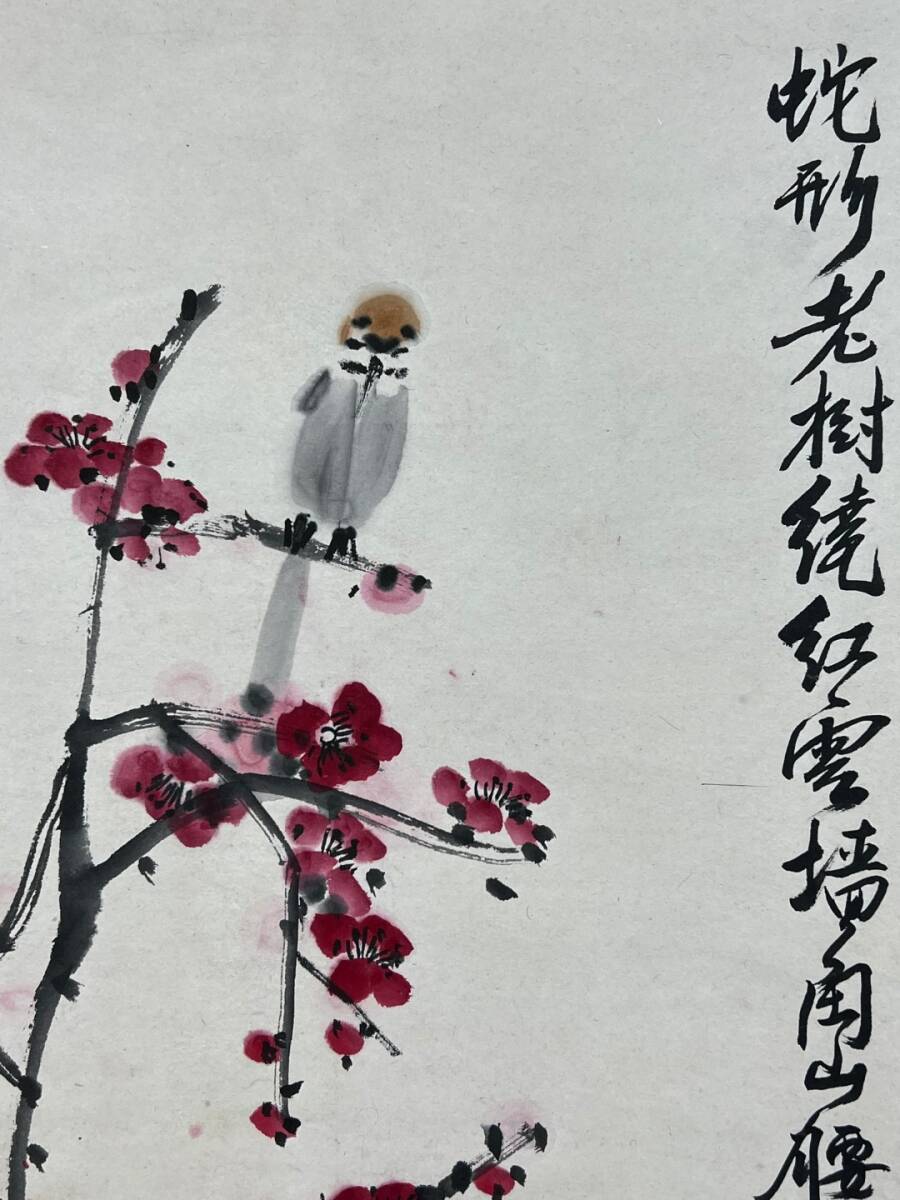 蛇形老樹繞紅雲墙角山腰